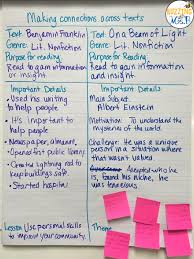 Making connections across texts
Text: Benjamin Franklin
Genre: Lit. Nonfiction
Purpose for reading:
Read to gain information
or insight
Important Details
• Used his writing
to help people
• It's important to
help people
• Newspaper, almanac,
• Opened first public library
• Created lightning rod to
keep buildings safe.
• Started hospital
Lesson Use personal skills
to improve your community.
Text: On a Beam of Light
Genre: Lit. Nonfiction
Purpose for Reading:
Read to gain information
and insight
Important Details
Main Subject:
Albert Einstein
Motivation: To understand the
mysteries of the world.
Challenge: He was a unique
person in a situation where
that wasn't valued
Accepted who he
is, found his niche, he
was tenacious
Theme